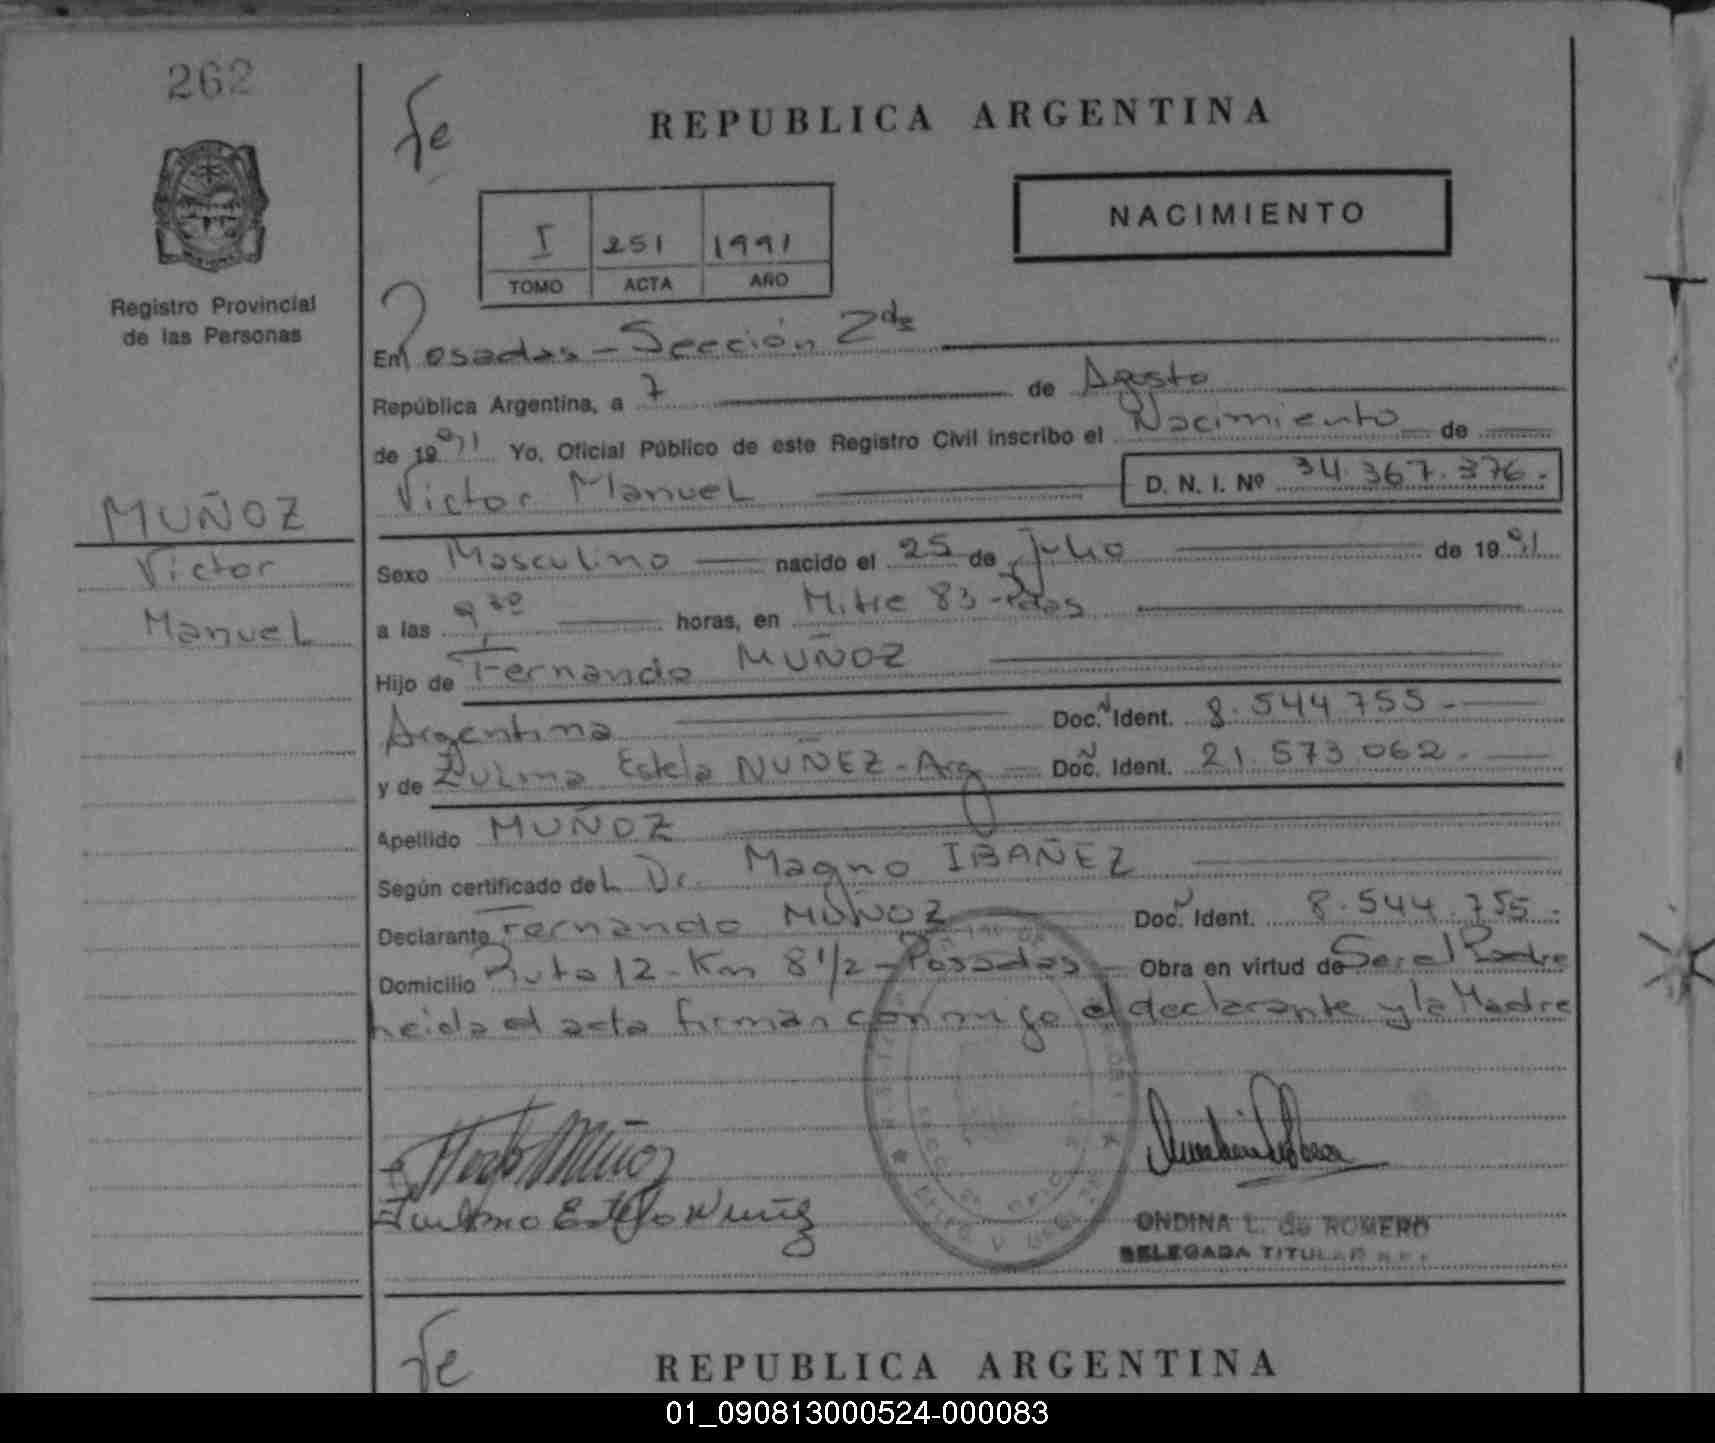 262
Registro Provincial
de las Personas
MUÑOZ
Victor
Manuel
Fe
REPUBLICA ARGENTINA
NACIMIENTO
I 251 1991
TOMO ACTA AÑO
En Posadas - Sección 2da
República Argentina, a 7 de Agosto
de 1991 Yo, Oficial Público de este Registro Civil inscribo el Nacimiento de
Victor Manuel D. N. I. Nº 34.367.376.
Sexo Masculino nacido el 25 de Julio de 1991
a las 9,30 horas, en Mitre 83 - Pdas
Hijo de Fernando MUÑOZ
Argentina Doc. Ident. 8.544.755.
y de Zulma Estela NUÑEZ - Arg Doc. Ident. 21.573.062.
Apellido MUÑOZ
Según certificado del Dr. Magno IBAÑEZ
Declarante Fernando MUÑOZ Doc. Ident. 8.544.755.
Domicilio Ruta 12 - Km 8 1/2 - Posadas Obra en virtud de Ser el Padre
heida el acta firman conmigo el declarante y la Madre
Muñoz
Estela Nuñez
ONDINA L. de ROMERO
DELEGADA TITULAR
Fe
REPUBLICA ARGENTINA
01_090813000524-000083